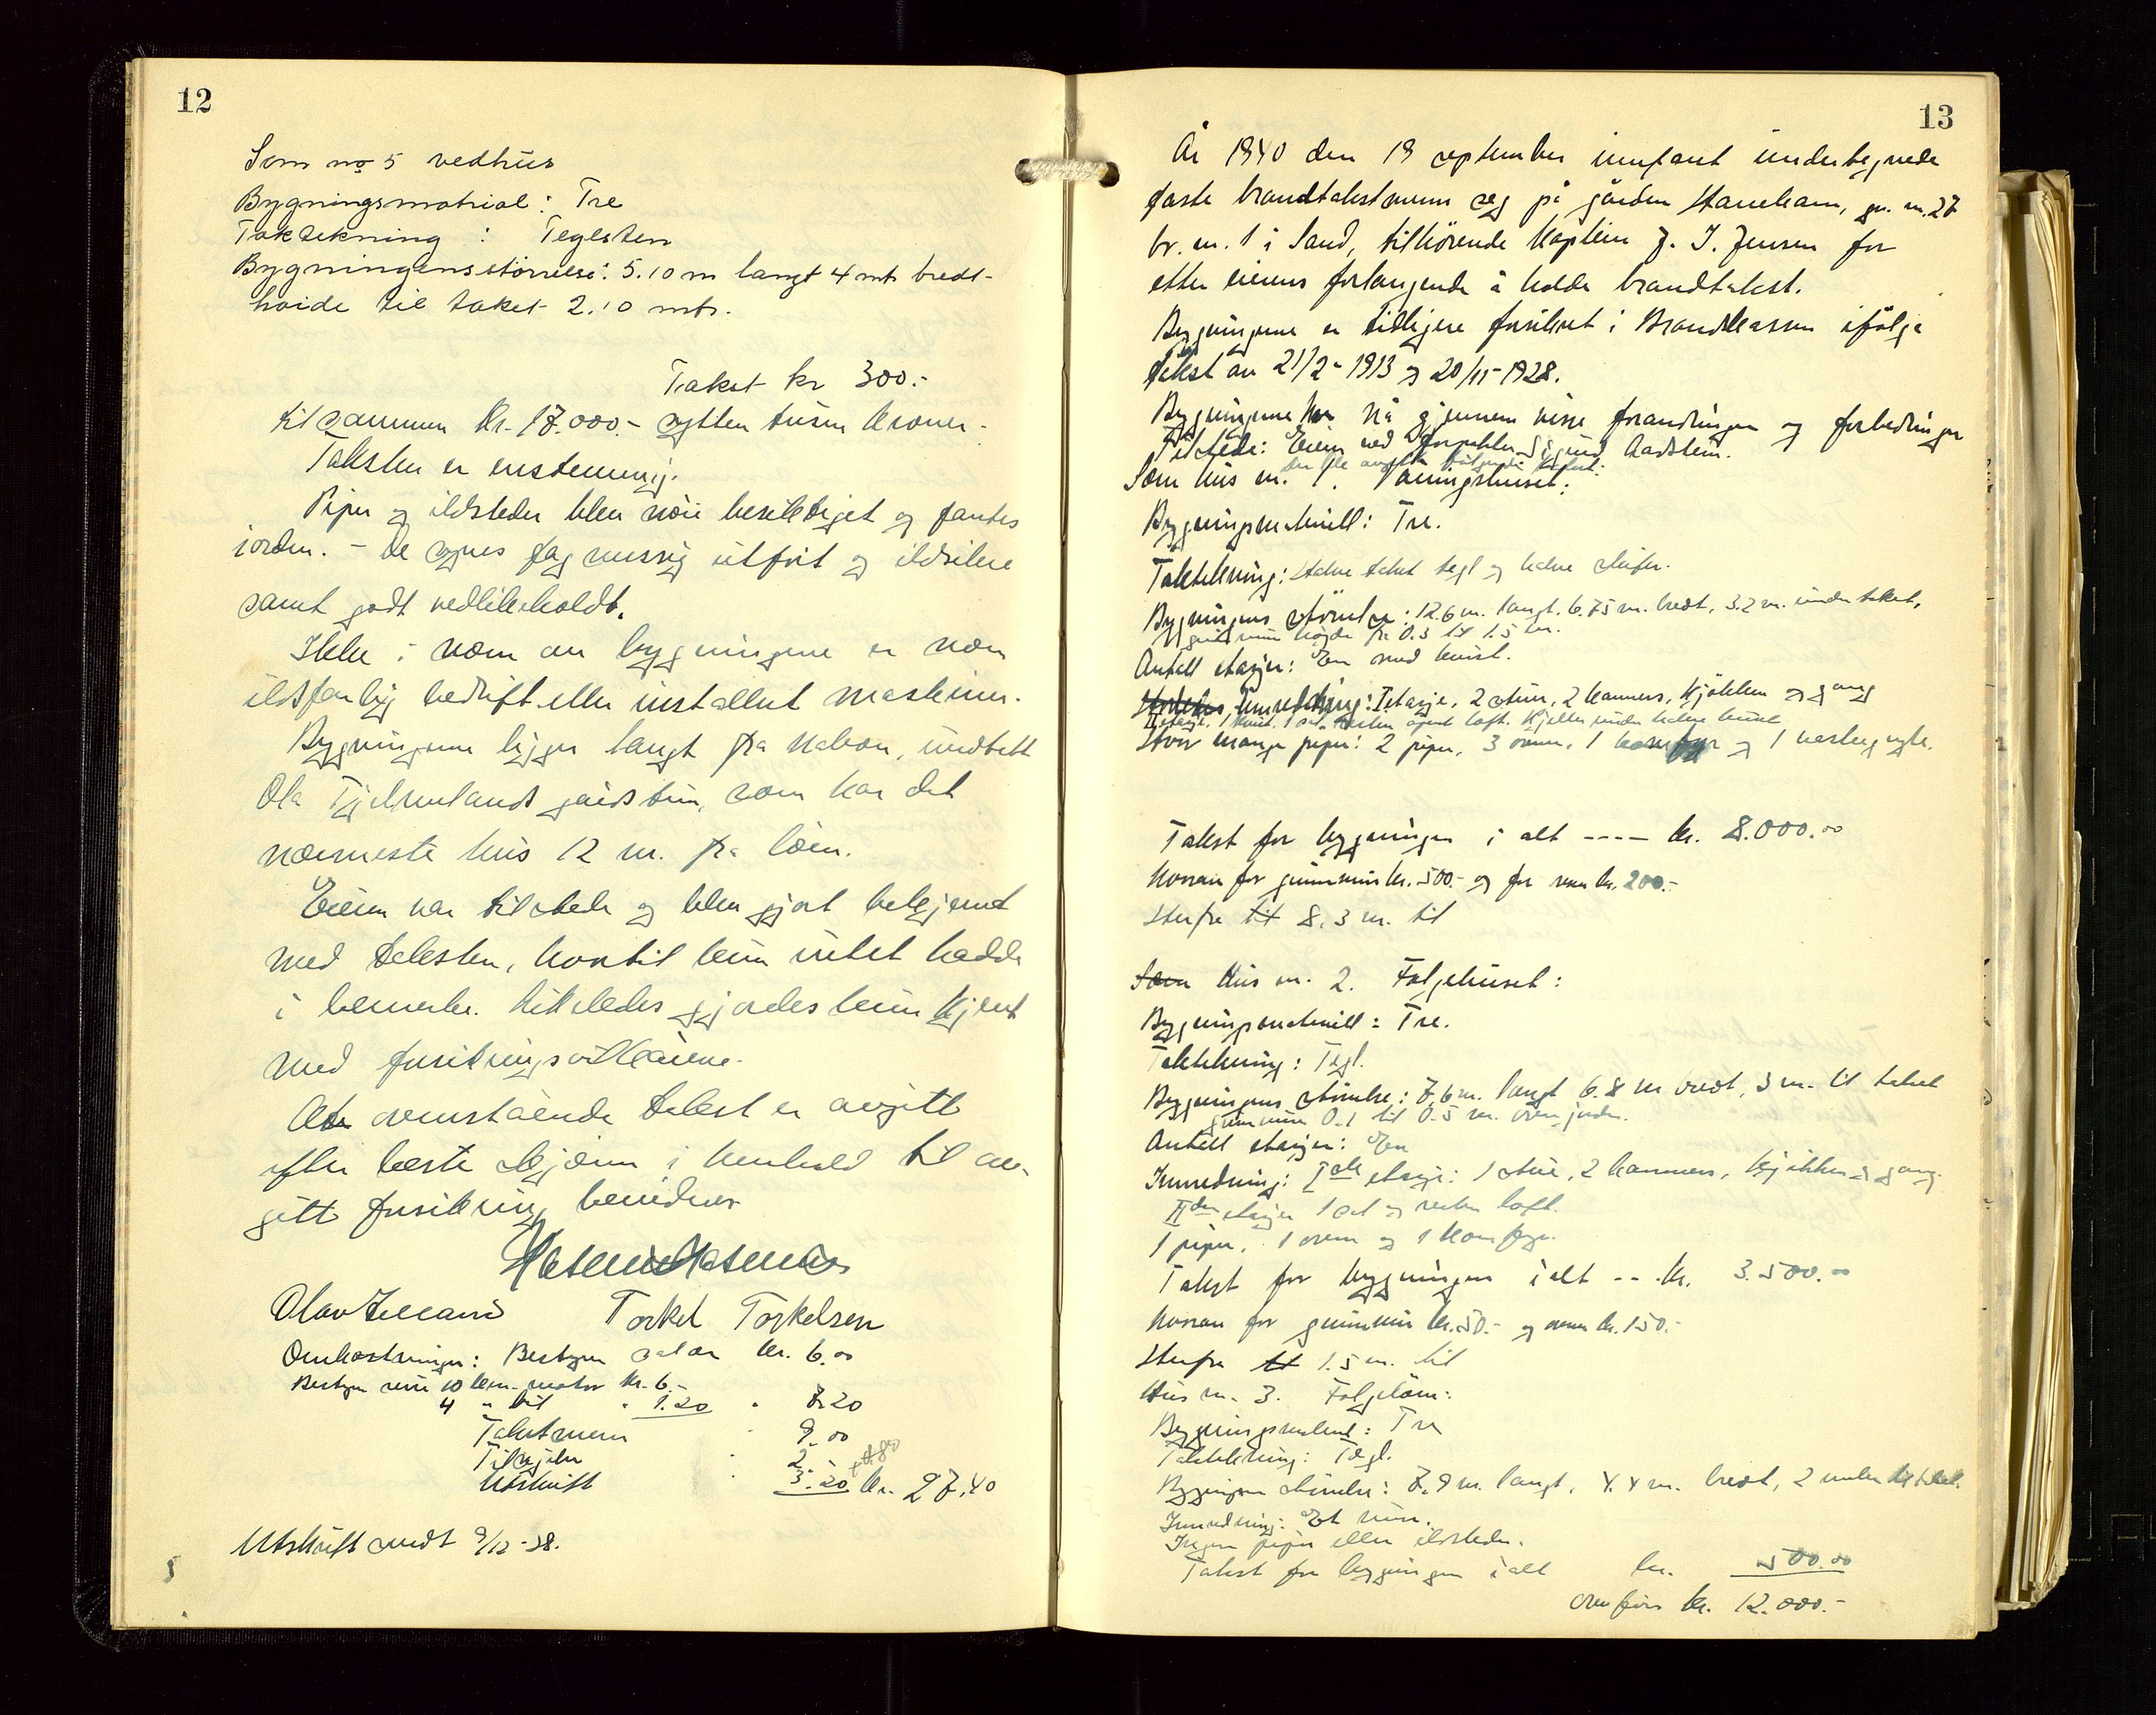 12
Som no 5 vedhus
Bygningsmatrial: Tre
Taktekning : Teglsten
Bygningensstörrelse: 5.10 m langt 4 mtr bredt-
høide til taket 2.10 mtr.
Takst kr 300.-
tilsammen Kr. 17.000.- sytten tusen kroner.
Taksten er enstemmig.
Piper og ildsteder blev nöie besiktiget og fantes
iorden. - De synes fagmessig utfört og ildsikre
samt godt vedlikeholdt.
Ikke i noen av bygningene er noen
ildsfarlig bedrift eller installert maskiner.
Bygningene ligger langt fra naboer, undtatt
Ola Tjelmelands gårdstun, som har det
nærmeste hus 12 m. fra löen.
Eieren var tilstede og blev gjort bekjennt
med taksten, hvortil hun intet hadde
i bemerke. Likeledes gjordes hun kjent
med forsikringsvilkårene.
At ovenstående takst er avgitt
efter beste skjönn i henhold til av-
gitt forsikring bevidnes
Torkel Torkelsen
Omkostninger: Bestyrer salær kr. 6.00
Bestyr reise 10 km. motor kr. 6.-
4 " bil " 1.20 " 7.20
Takstmenn " 9.00
2.-
Utskrift " 3.20 kr. 27.40
Utskrift sendt 9/12-38.
5
13
År 1940 den 19 september innfant undertegnede
faste brandtakstmenn seg på gården , gr. nr. 27
br. nr. 1 i Sand, tilhörende Kaptein J. I. Jensen for
etter eierens forlangende å holde brandtakst.
Bygningene er tidligere forsikret i Brandkassen ifölge
takst av 21/2-1913 og 20/11-1928.
Bygningene har nå gjennem visse forandringer og forbedringer
Tilstede: Eieren ved forpakter Sigurd Aadstein.
Der ble avgitt fölgende takst:
Som hus nr. 1. Våningshuset:
Bygningsmateriell: Tre.
Taktekning: Halve taket tegl og halve skifer.
Bygningens störrelse: 12.6 m. langt. 6.75 m. bredt, 3.2 m. under taket,
grunnmur höyde fra 0.3 til 1.5 m.
Antall etasjer: En med kvist.
Innredning: I etasje, 2 stuer, 2 kammers, kjökken og gang
II etasje. 1 kvist, 1 sal, resten åpent loft. Kjeller under halve huset
Hvor mange piper: 2 piper, 3 ovner, 1 komfyr og 1
Takst for bygningen i alt ---- kr. 8.000.00
Hvorav for grunnmur kr. 500.- og for ovner kr. 200.-
Herfra til 8.3 m. til
Som Hus nr. 2. Følgehuset:
Bygningsmateriell: Tre.
Taktekning: Tegl.
Bygningens störrelse: 7.6 m. langt 6.8 m bredt, 3 m. til taket
grunnmur 0.1 til 0.5 m. over jorden.
Antall etasjer: En
Innredning: I ste etasje: 1 stue, 2 kammers, kjökken og gang.
II den etasjer 1 sal og resten loft.
1 pipe, 1 ovn og 1 komfyr.
Takst for bygningen ialt --- kr. 3.500.00
Hvorav for grunnmur kr. 50.- og ovner kr. 150.-
Herfra til 1.5 m. til
Hus nr. 3. Følgelöen:
Bygningsmateriell: Tre
Taktekning: Tegl.
Bygningens störrelse: 7.9 m. langt, 4.4 m. bredt, 2 til taket.
Innredning: Et rum.
Ingen piper eller ildsteder.
Takst for bygningen ialt kr. 500.00
overföres kr. 12.000.-